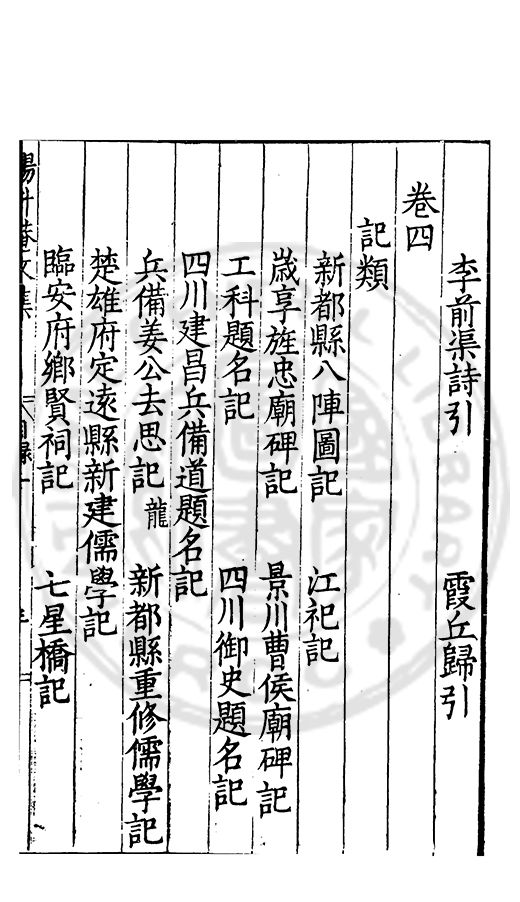 李前渠詩引 霞丘歸引
卷四
記類
新都縣八陣圖記 江祀記
歲享旌忠廟碑記 景川曹侯廟碑記
工科題名記 四川御史題名記
四川建昌兵備道題名記
兵備姜公去思記 龍 新都縣重修儒學記
楚雄府定遠縣新建儒學記
臨安府鄉賢祠記 七星橋記